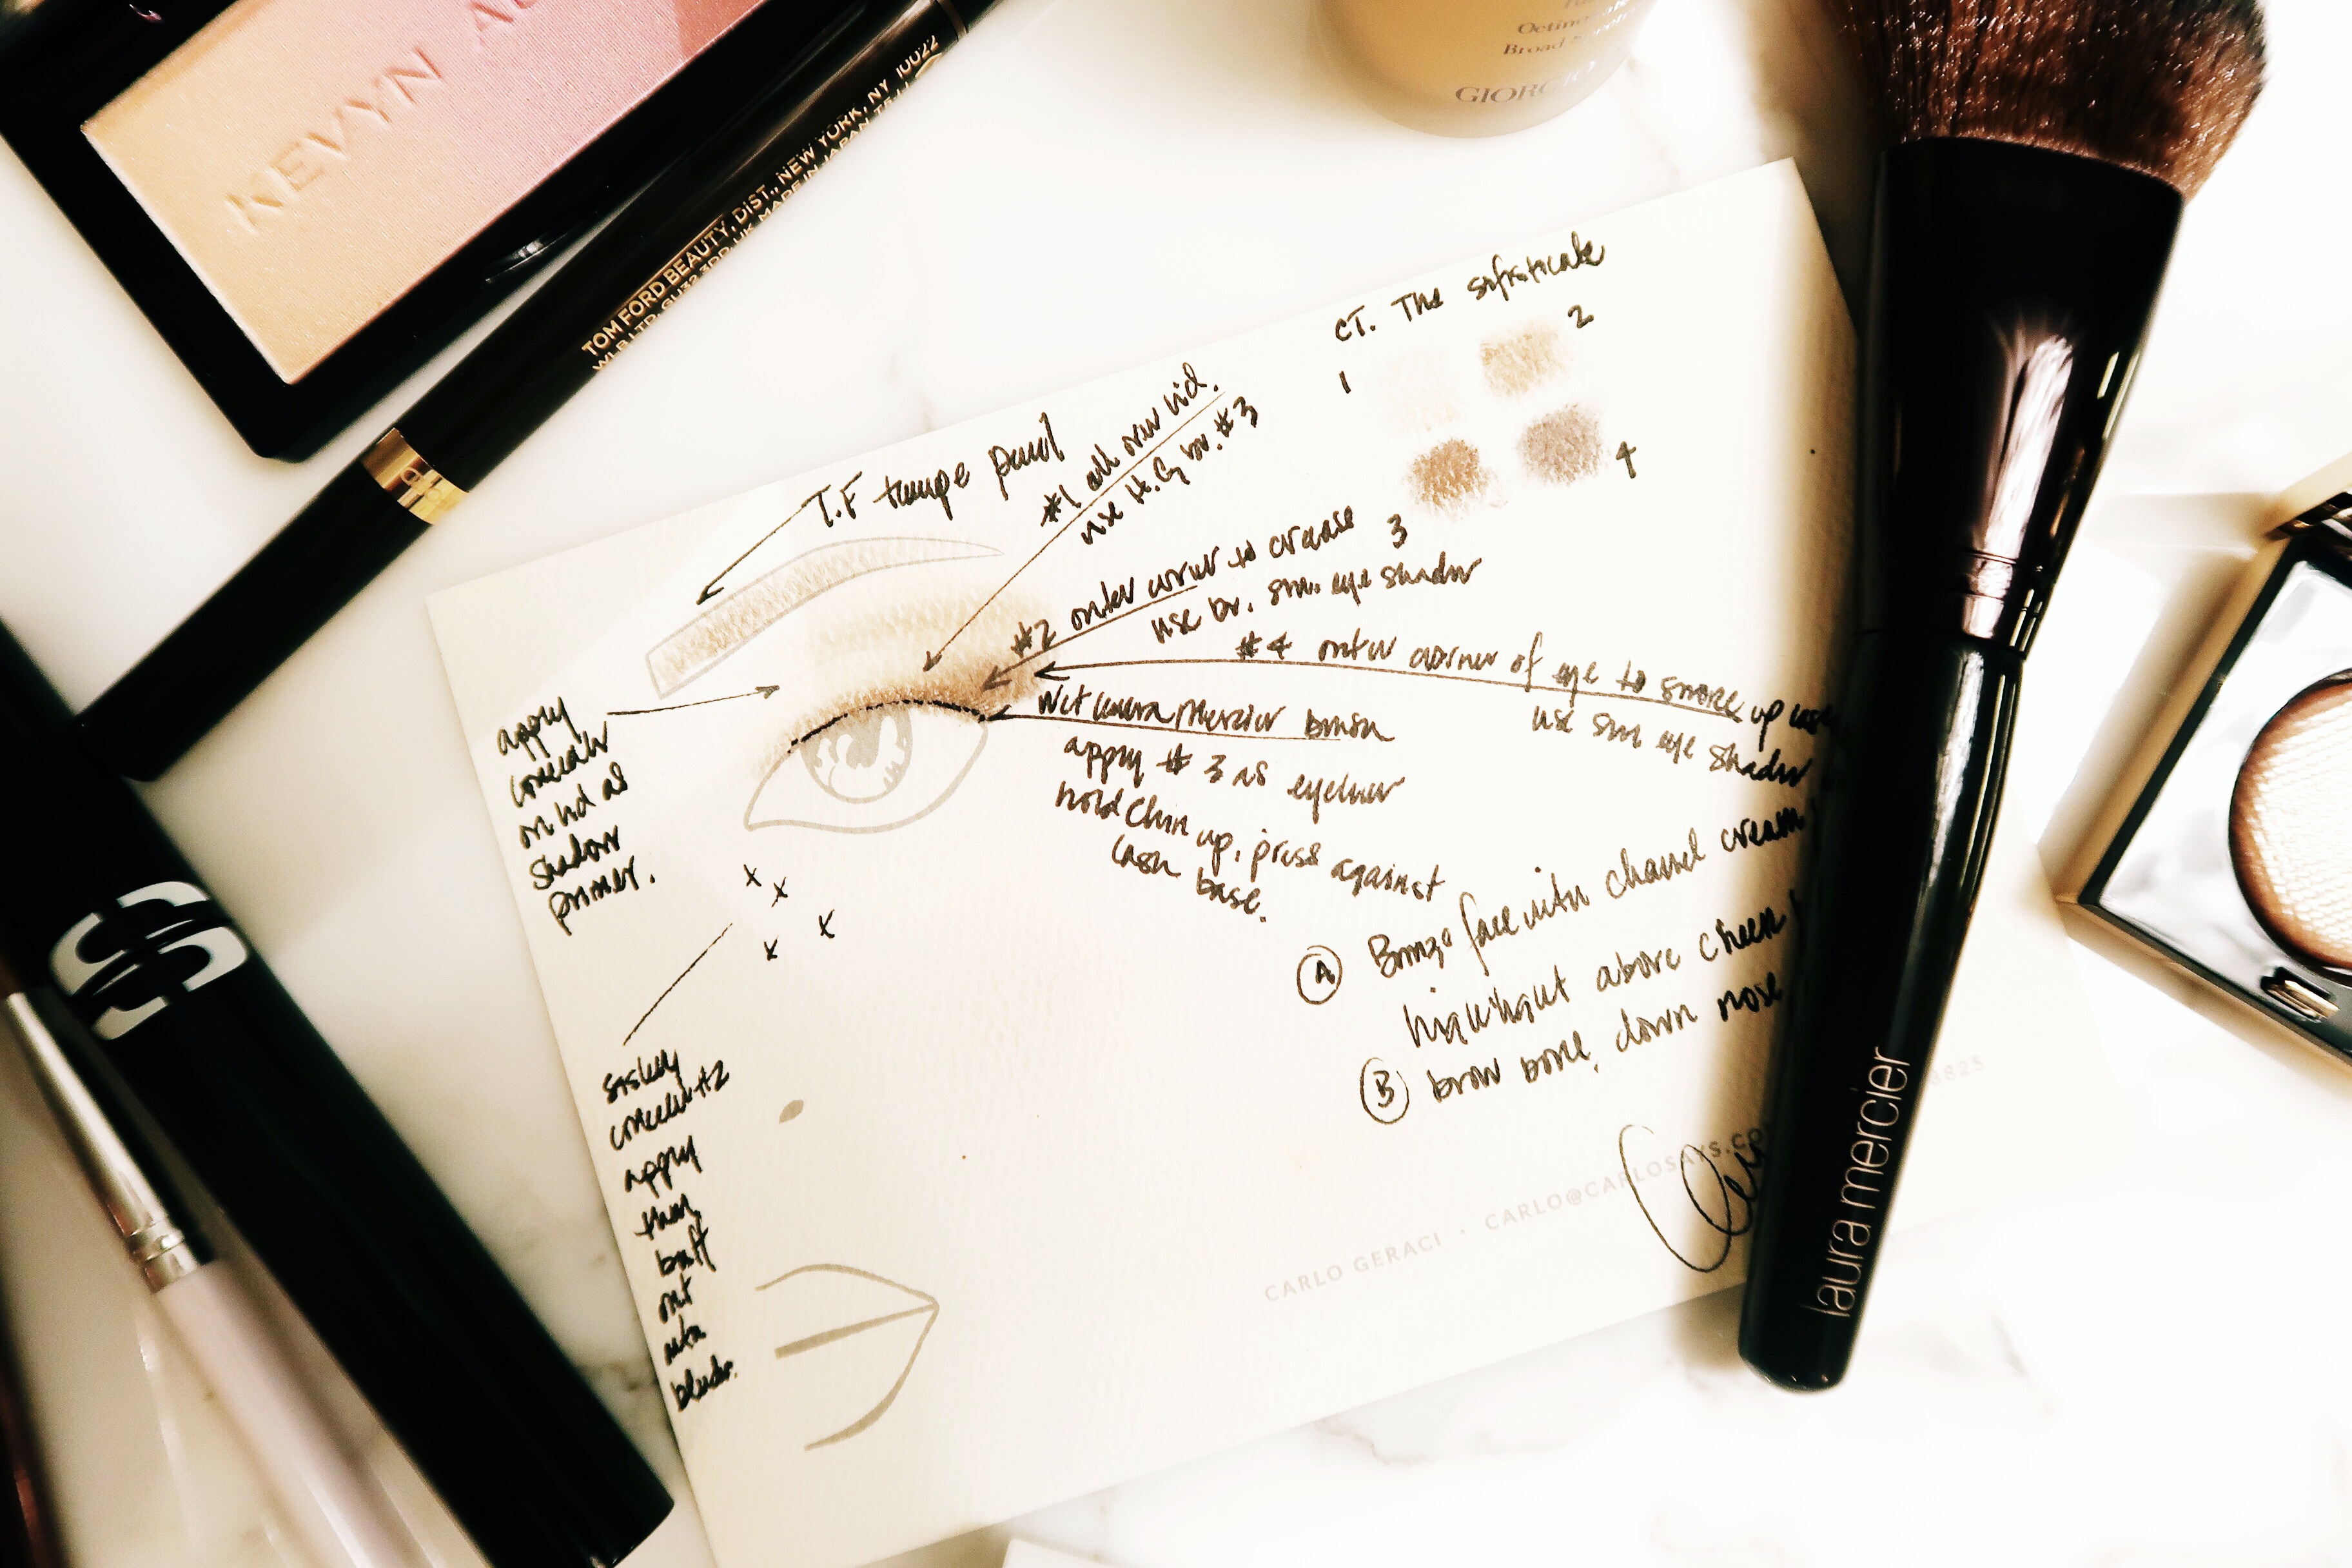 KEVYN AU
TOM FORD BEAUTY, DIST., NEW YORK, NY 10022
MADE IN JAPAN
Octino
Broad
GIORGIO
CT. The sofisticate
1
2
3
4
T.F taupe pencil
#1 all over lid.
use H.G br. #3
#2 outer corner to crease
use br. sm. eye shadow
#4 outer corner of eye to smoke up
use sm eye shadow
Wet Laura Mercier brush
apply #3 as eyeliner
hold Chin up, press against
lash base.
apply
concealer
on lid as
shadow
primer.
x x
x x
sisley
conceal #2
apply
then
buff
out
into
A Bronze face with chanel cream
highlight above cheek
B brow bone, down nose
8825
CARLO GERACI · CARLO@CARLOSAYS.CO
laura mercier